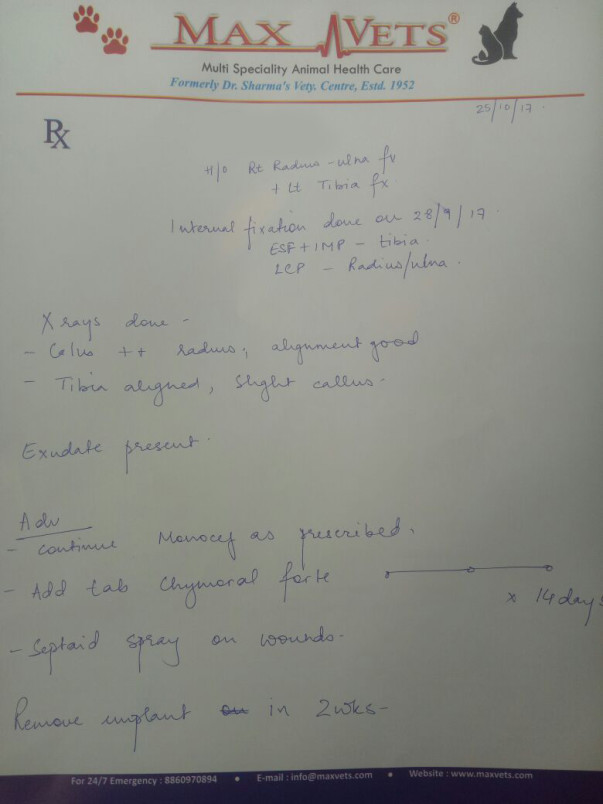 MAX VETS®
Multi Speciality Animal Health Care
Formerly Dr. Sharma's Vety. Centre, Estd. 1952
25/10/17.
Rx
H/o Rt Radius-ulna fx
+ Lt Tibia fx
Internal fixation done on 28/9/17.
ESF + IMP - tibia.
LCP - Radius/ulna.
X rays done -
- Calus ++ radius, alignment good
- Tibia aligned, slight callus.
Exudate present.
Adv
- continue Monocef as prescribed.
- Add tab Chymoral forte
x 14 days
- Septaid spray on wounds.
Remove implant in 2wks-
For 24/7 Emergency : 8860970894 • E-mail : info@maxvets.com • Website : www.maxvets.com